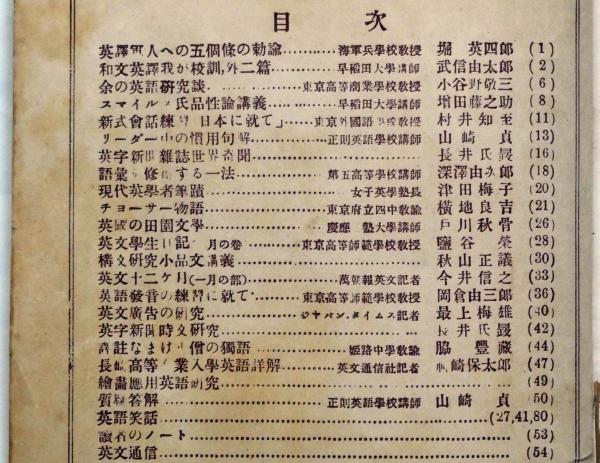 目次
英譯軍人への五個條の勅諭…………海軍兵學校敎授 堀英四郎 (1)
和文英譯我が校訓,外二篇…………早稻田大學講師 武信由太郎 (2)
余の英語硏究談…………東京高等商業學校敎授 小谷野敬三 (6)
スマイルス氏品性論講義…………早稻田大學講師 増田藤之助 (8)
新式會話練習「日本に就て」…………東京外國語學校敎授 村井知至 (11)
リーダー中の慣用句解…………正則英語學校講師 山崎貞 (13)
英字新聞雜誌世界奇聞………… 長井氏晸 (16)
語彙を修得する一法…………第五高等學校講師 深澤由次郎 (18)
現代英學者筆蹟…………女子英學塾長 津田梅子 (20)
チョーサー物語…………東京府立四中敎諭 橫地良吉 (21)
英國の田園文學…………慶應塾大學講師 戸川秋骨 (26)
英文學生日記 一月の卷…………東京高等師範學校敎授 鹽谷榮 (28)
構文硏究小品文講義………… 秋山正議 (30)
英文十二ケ月(一月の部)…………萬朝報英文記者 今井信之 (33)
英語發音の練習に就て…………東京高等師範學校敎授 岡倉由三郎 (36)
英文廣告の硏究…………ジャパン,タイムス記者 最上梅雄 (40)
英字新聞時文硏究………… 長井氏晸 (42)
註なまけ僧の獨語…………姬路中學敎諭 脇豐藏 (44)
長崎高等業入學英語詳解…………英文通信社記者 崎保太郎 (47)
繪畵應用英語硏究………… (49)
質疑答解…………正則英語學校講師 山崎貞 (50)
英語笑話…………(27,41,80)
讀者のノート………… (53)
英文通信………… (54)